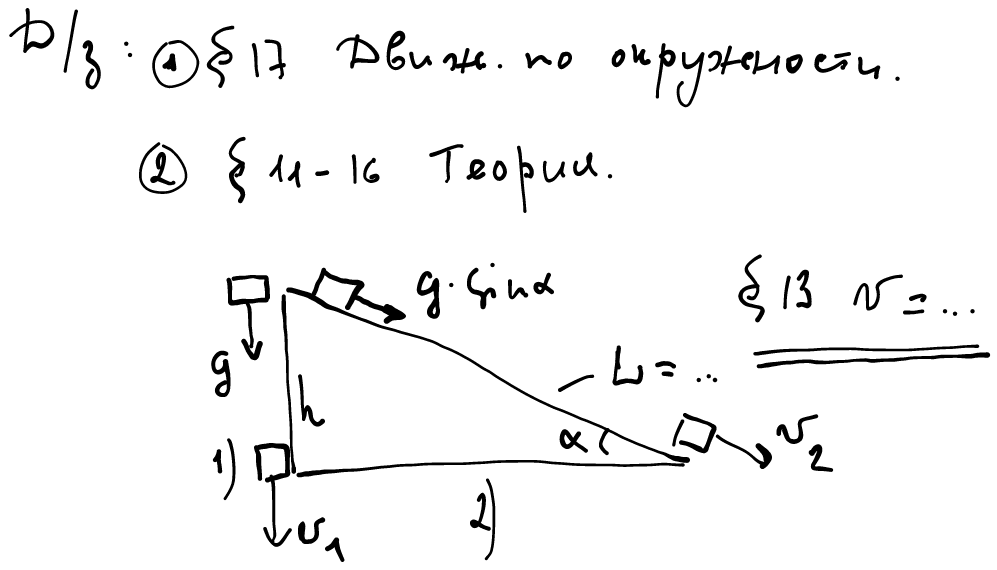 D/з: ① § 17 Движ. по окружности.
② § 11-16 Теория.
g·sinα
§ 13 v = ...
g
h
L = ...
α
v₂
1)
2)
v₁